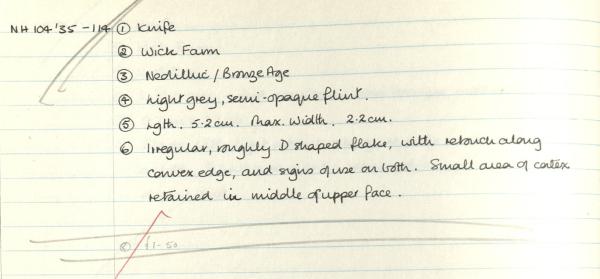 NH 104'35 - 114 ① Knife
② Wick Farm
③ Neolithic / Bronze Age
④ Light grey, semi-opaque flint.
⑤ Lgth. 5.2cm. Max. Width. 2.2cm.
⑥ Irregular, roughly D shaped flake, with retouch along
convex edge, and signs of use on both. Small area of cortex
retained in middle of upper face.
£1-50